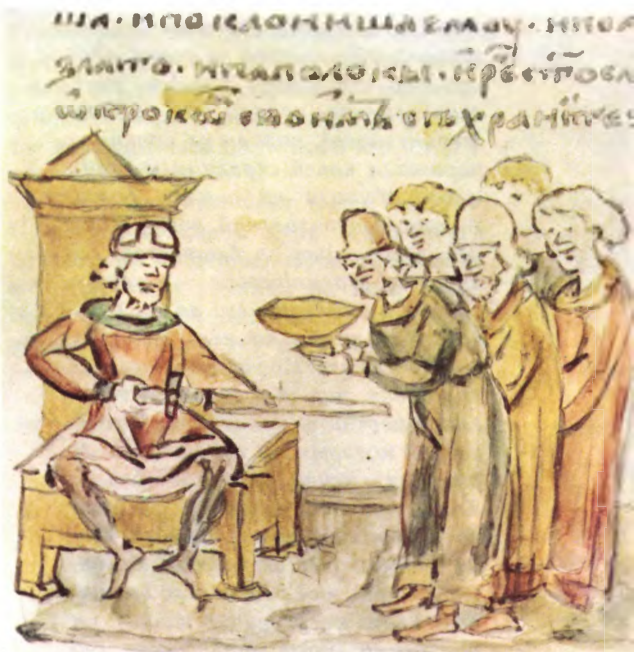 ша · и поклониша емоу · и
злато · и паволокы · и рⷭ҇е
ѿтрокоⷨ своимъ схраните